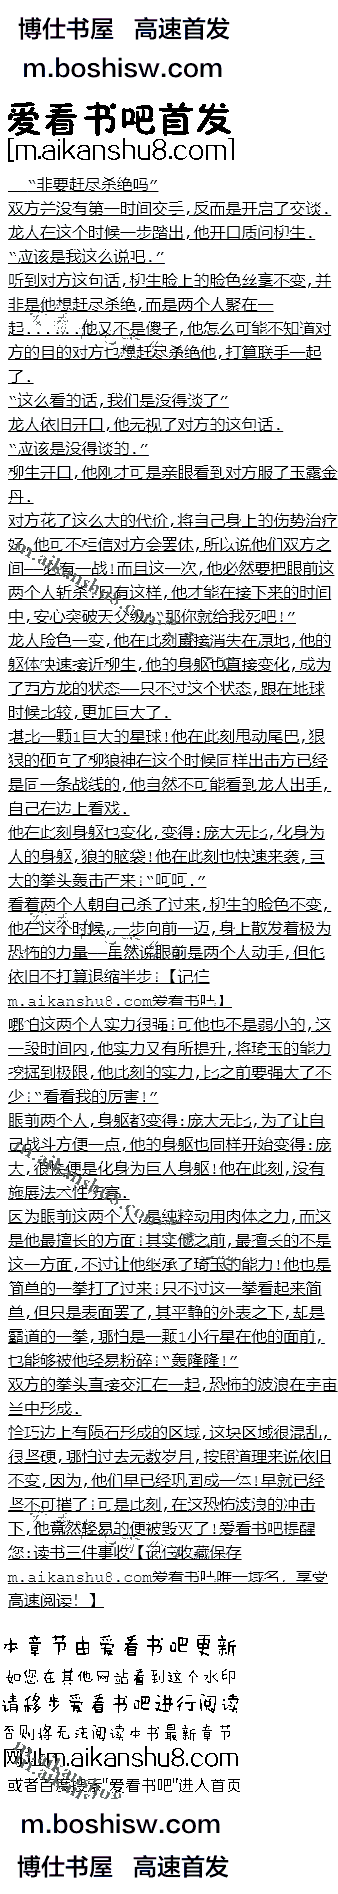 博仕书屋 高速首发
m.boshisw.com
爱看书吧首发
[m.aikanshu8.com]
“非要赶尽杀绝吗”
双方并没有第一时间交手,反而是开启了交谈.
龙人在这个时候一步踏出,他开口质问柳生.
“应该是我这么说吧.”
听到对方这句话,柳生脸上的脸色丝毫不变,并
非是他想赶尽杀绝,而是两个人聚在一
起......他又不是傻子,他怎么可能不知道对
方的目的对方也想赶尽杀绝他,打算联手一起
了.
“这么看的话,我们是没得谈了”
龙人依旧开口,他无视了对方的这句话.
“应该是没得谈的.”
柳生开口,他刚才可是亲眼看到对方服了玉露金
丹.
对方花了这么大的代价,将自己身上的伤势治疗
好,他可不相信对方会罢休,所以说他们双方之
间——必有一战!而且这一次,他必然要把眼前这
两个人斩杀!只有这样,他才能在接下来的时间
中,安心突破天父级!“那你就给我死吧!”
龙人脸色一变,他在此刻直接消失在原地,他的
躯体快速接近柳生,他的身躯也直接变化,成为
了西方龙的状态——只不过这个状态,跟在地球
时候比较,更加巨大了.
堪比一颗1巨大的星球!他在此刻甩动尾巴,狠
狠的砸向了柳狼神在这个时候同样出击方已经
是同一条战线的,他当然不可能看到龙人出手,
自己在边上看戏.
他在此刻身躯也变化,变得:庞大无比,化身为
人的身躯,狼的脑袋!他在此刻也快速来袭,巨
大的拳头轰击而来!“呵呵.”
看着两个人朝自己杀了过来,柳生的脸色不变,
他在这个时候,一步向前一迈,身上散发着极为
恐怖的力量——虽然说眼前是两个人动手,但他
依旧不打算退缩半步!【记住
m.aikanshu8.com爱看书吧】
哪怕这两个人实力很强!可他也不是弱小的,这
一段时间内,他实力又有所提升,将琦玉的能力
挖掘到极限,他此刻的实力,比之前要强大了不
少!“看看我的厉害!”
眼前两个人,身躯都变得:庞大无比,为了让自
己战斗方便一点,他的身躯也同样开始变得:庞
大,很快便是化身为巨人身躯!他在此刻,没有
施展法术性伤害.
因为眼前这两个人,是纯粹动用肉体之力,而这
是他最擅长的方面!其实他之前,最擅长的不是
这一方面,不过让他继承了琦玉的能力!他也是
简单的一拳打了过来!只不过这一拳看起来简
单,但只是表面罢了,其平静的外表之下,却是
霸道的一拳,哪怕是一颗1小行星在他的面前,
也能够被他轻易粉碎!“轰隆隆!”
双方的拳头直接交汇在一起,恐怖的波浪在宇宙
当中形成.
恰巧边上有陨石形成的区域,这块区域很混乱,
很坚硬,哪怕过去无数岁月,按照道理来说依旧
不变,因为,他们早已经巩固成一体!早就已经
坚不可摧了!可是此刻,在这恐怖波浪的冲击
下,他竟然轻易的便被毁灭了!爱看书吧提醒
您:读书三件事收【记住收藏保存
m.aikanshu8.com爱看书吧唯一域名,享受
高速阅读!】
本章节由爱看书吧更新
如您在其他网站看到这个水印
请移步爱看书吧进行阅读
否则将无法阅读本书最新章节
网址m.aikanshu8.com
或者百度搜索"爱看书吧"进入首页
m.boshisw.com
博仕书屋 高速首发